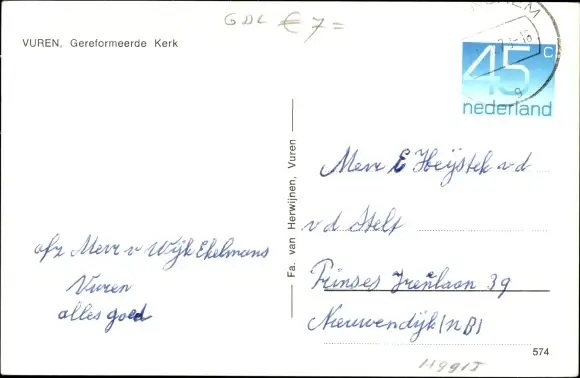 GDL € 7 =
VUREN, Gereformeerde Kerk
45 c
nederland
Fa. van Herwijnen, Vuren
Mevr E Heijstek v d
v d Stelt
Prinses Irenelaan 39
Nieuwendijk (NB)
afz Mevr v Wijk Ekelmans
Vuren
alles goed
574